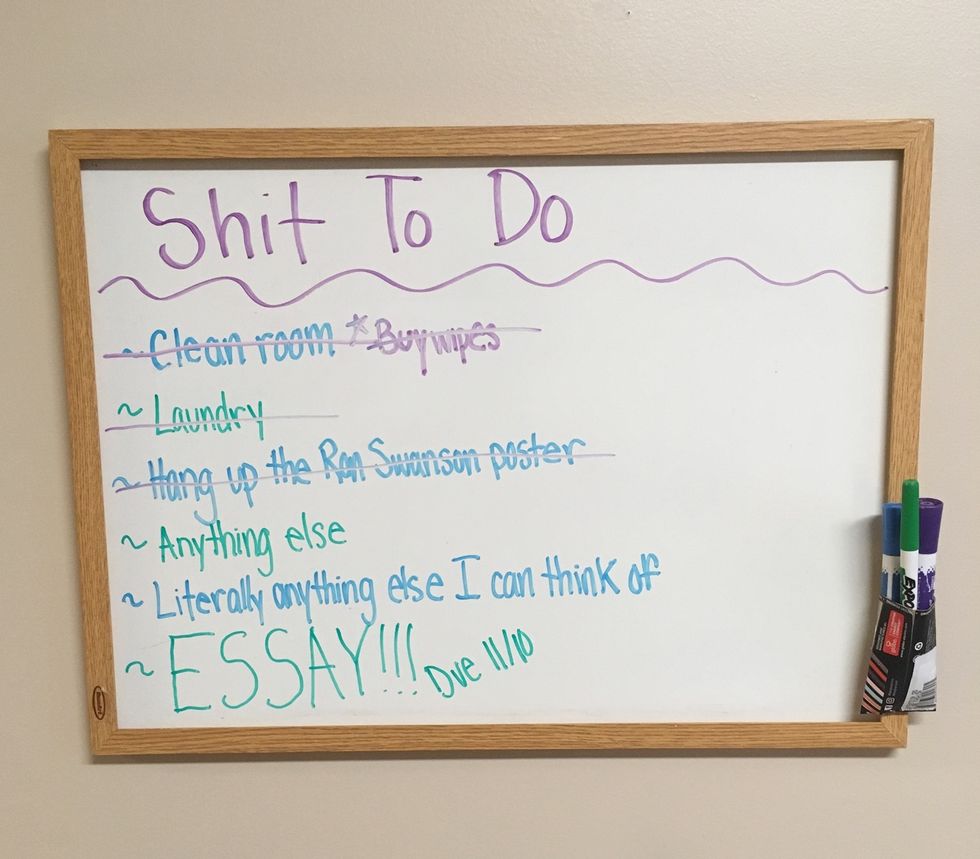 Shit To Do
~ Clean room *Buy wipes
~ Laundry
~ Hang up the Ron Swanson poster
~ Anything else
~ Literally anything else I can think of
~ ESSAY!!! Due 11/10
EXPO